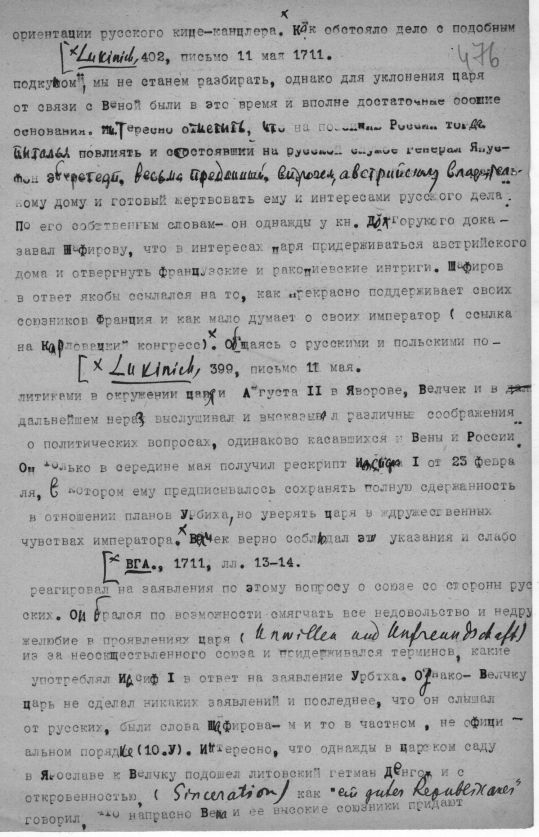 ориентации русского вице-канцлера.ˣ Как обстояло дело с подобным
[ˣ Lukinich, 402, письмо 11 мая 1711.
476
подкупом, мы не станем разбирать, однако для уклонения царя
от связи с Веной были в это время и вполне достаточные общие
основания. Интересно отметить, что на позицию России тогда
пытался повлиять и состоявший на русской службе генерал Янус-
фон Эберштедт, весьма преданный, австрийскому владетель-
ному дому и готовый жертвовать ему и интересами русского дела.
По его собственным словам- он однажды у кн. Долгорукого дока-
завал Шафирову, что в интересах царя придерживаться австрийского
дома и отвергнуть французские и ракоциевские интриги. Шафиров
в ответ якобы ссылался на то, как прекрасно поддерживает своих
союзников Франция и как мало думает о своих император ( ссылка
на Карловацкий конгресс).ˣ Общаясь с русскими и польскими по-
[ˣ Lukinich, 399, письмо 11 мая.
литиками в окружении царя и Августа II в Яворове, Велчек и в
дальнейшем не раз выслушивал и высказывал различные соображения
о политических вопросах, одинаково касавшихся и Вены и России.
Он только в середине мая получил рескрипт Иосифа I от 23 февра
ля, в котором ему предписывалось сохранять полную сдержанность
в отношении планов Урбиха, но уверять царя в ждружественных
чувствах императора.ˣ Велчек верно соблюдал эти указания и слабо
[ˣ ВГА., 1711, лл. 13-14.
реагировал на заявления по этому вопросу о союзе со стороны рус
ских. Он брался по возможности смягчать все недовольство и недру
желюбие в проявлениях царя ( Unwillen und Unfreundschaft)
из за неосуществленного союза и придерживался терминов, какие
употреблял Иосиф I в ответ на заявление Урбиха. Однако- Велчку
царь не сделал никаких заявлений и последнее, что он слышал
от русских, были слова Шафирова- и то в частном, не офици-
альном порядке (10.У). Интересно, что однажды в царском саду
в Ярославе к Велчку подошел литовский гетман Денгоф и с
откровенностью, ( Sinceration) как "ein guter Republikaner"
говорил, что напрасно Вена и ее высокие союзники придают